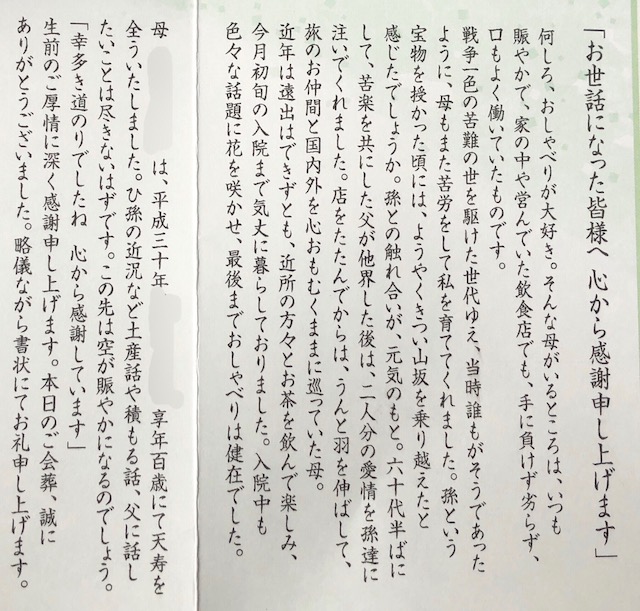 「お世話になった皆様へ 心から感謝申し上げます」
何しろ、おしゃべりが大好き。そんな母がいるところは、いつも
賑やかで、家の中や営んでいた飲食店でも、手に負けず劣らず、
口もよく働いていたものです。
戦争一色の苦難の世を駆けた世代ゆえ、当時誰もがそうであった
ように、母もまた苦労をして私を育ててくれました。孫という
宝物を授かった頃には、ようやくきつい山坂を乗り越えたと
感じたでしょうか。孫との触れ合いが、元気のもと。六十代半ばに
して、苦楽を共にした父が他界した後は、二人分の愛情を孫達に
注いでくれました。店をたたんでからは、うんと羽を伸ばして、
旅のお仲間と国内外を心おもむくままに巡っていた母。
近年は遠出はできずとも、近所の方々とお茶を飲んで楽しみ、
今月初旬の入院まで気丈に暮らしておりました。入院中も
色々な話題に花を咲かせ、最後までおしゃべりは健在でした。
母 は、平成三十年 享年百歳にて天寿を
全ういたしました。ひ孫の近況など土産話や積もる話、父に話し
たいことは尽きないはずです。この先は空が賑やかになるのでしょう。
「幸多き道のりでしたね 心から感謝しています」
生前のご厚情に深く感謝申し上げます。本日のご会葬、誠に
ありがとうございました。略儀ながら書状にてお礼申し上げます。